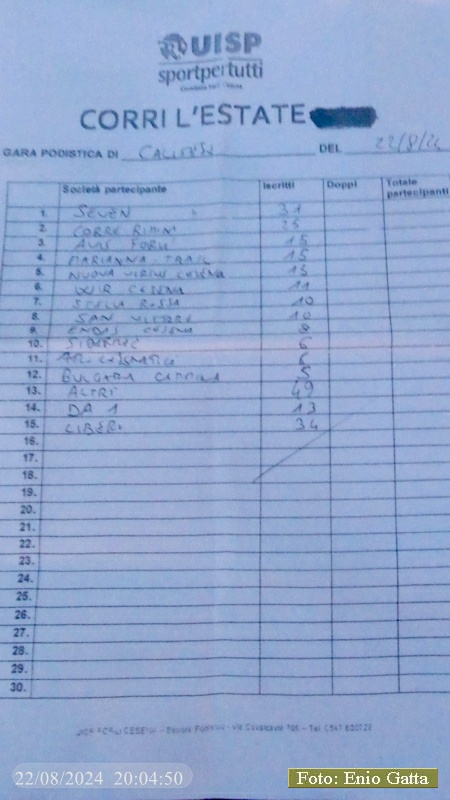 UISP
sportpertutti
CORRI L'ESTATE
GARA PODISTICA DI CALISESE DEL 22/8/24
Società partecipante Iscritti Doppi Totale partecipanti
1. SEVEN 31
2. CORRE RIMINI 25
3. AVIS FORLI 15
4. MARIANNA TRAIL 15
5. NUOVA VIRTUS CESENA 13
6. UISP CESENA 11
7. STELLA ROSSA 10
8. SAN VITTORE 10
9. ENDAS CESENA 8
10. 6
11. 6
12. BULGARA 5
13. ALTRI 49
14. DA 1 13
15. LIBERI 34
16.
17.
18.
19.
20.
21.
22.
23.
24.
25.
26.
27.
28.
29.
30.
UISP FORLI CESENA - Via Cavalcavia - Tel.
22/08/2024 20:04:50
Foto: Enio Gatta